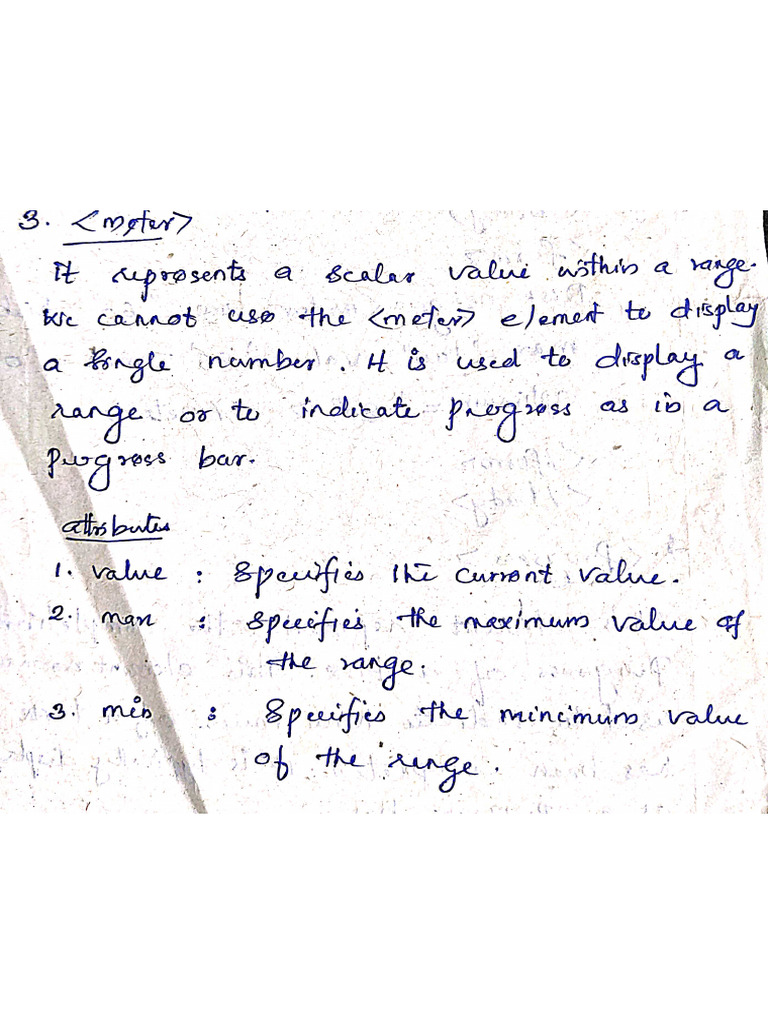 3. <meter>
It represents a scalar value within a range.
We cannot use the <meter> element to display
a single number. It is used to display a
range or to indicate progress as in a
progress bar.
attributes
1. value : Specifies the current value.
2. max : Specifies the maximum value of
the range.
3. min : Specifies the minimum value
of the range.